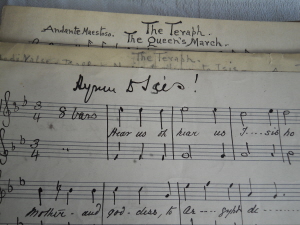 Andante Maestoso. The Teraph.
The Queen's March.
The Teraph.
Hymn to Isis!
3/4 8 bars
Hear us oh hear us I--sis ho
3/4 "
Mother and god-dess, to